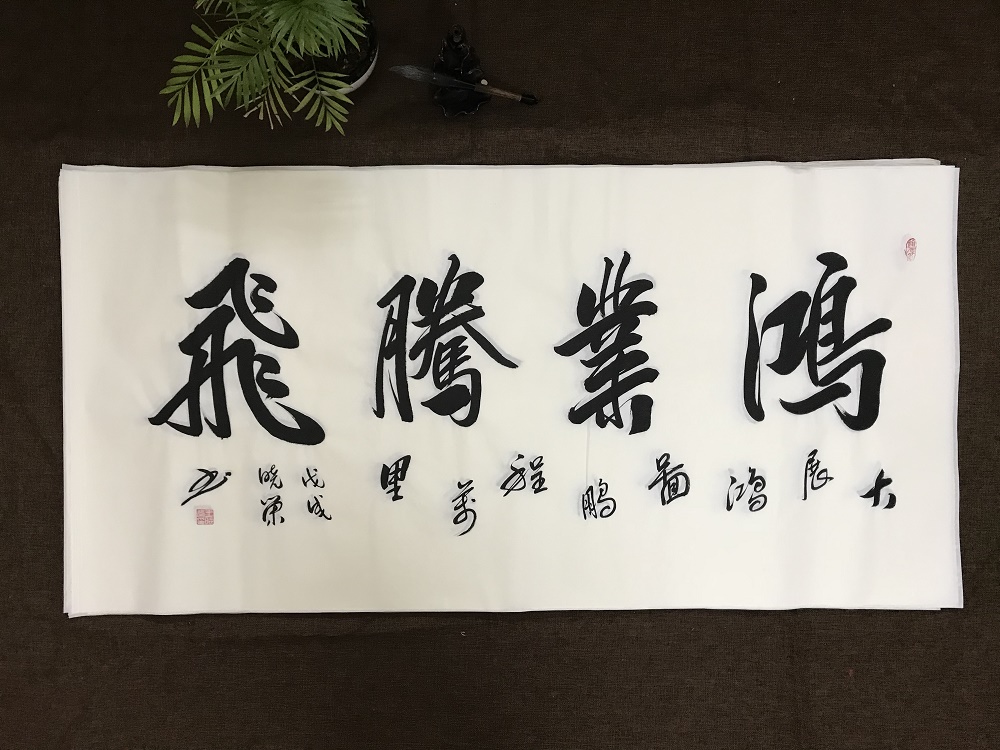 鴻業騰飛
大展鴻圖鵬程萬里
戊戌
曉榮
书